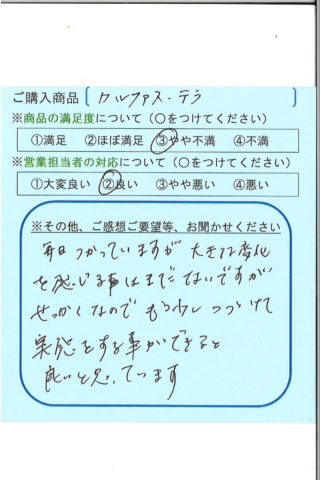 ご購入商品 カルファス・テラ
※商品の満足度について(〇をつけてください)
①満足 ②ほぼ満足 ③やや不満 ④不満
※営業担当者の対応について(〇をつけてください)
①大変良い ②良い ③やや悪い ④悪い
※その他、ご感想ご要望等、お聞かせください
毎日つかっていますが 大きな変化
を感じる事はまだないですが
せっかくなので もう少しつづけて
実感をする事ができると
良いと思っています